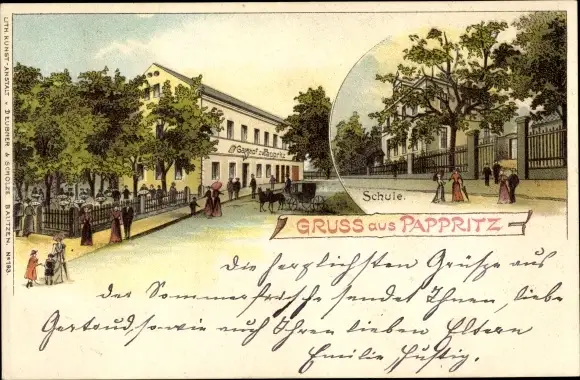 LITH. KUNST-ANSTALT v. DEUBNER & SCHOLZE, BAUTZEN. No 193.
Gasthof
Schule.
GRUSS aus PAPPRITZ
Die herzlichsten Grüsse aus
der Sommerfrische sendet Ihnen, liebe
Gertrud, sowie auch Ihren lieben Eltern
Emilie